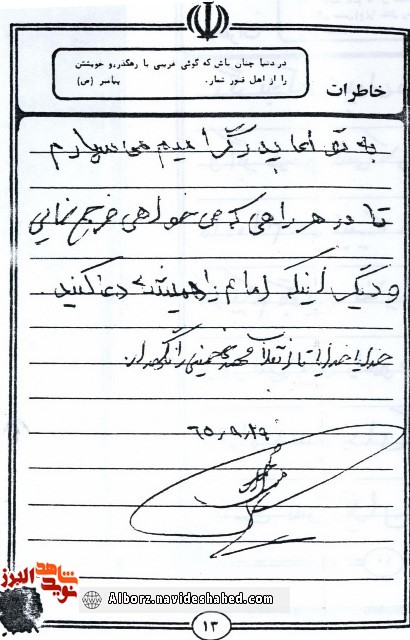 در دنیا چنان باش که گوئی غریبی یا رهگذر، و خویشتن
را از اهل قبور شمار.
پیامبر (ص)
خاطرات
به تو ای پدر گرامیم می سپارم
تا در هر راهی که می خواهی خرج نمایی
و دیگر اینکه امام را همیشه دعا کنید.
خدایا خدایا تا انقلاب مهدی خمینی را نگهدار.
٦٥،٩،٢٩
شاهد
نوید
البرز
Alborz.navideshahed.com
١٣